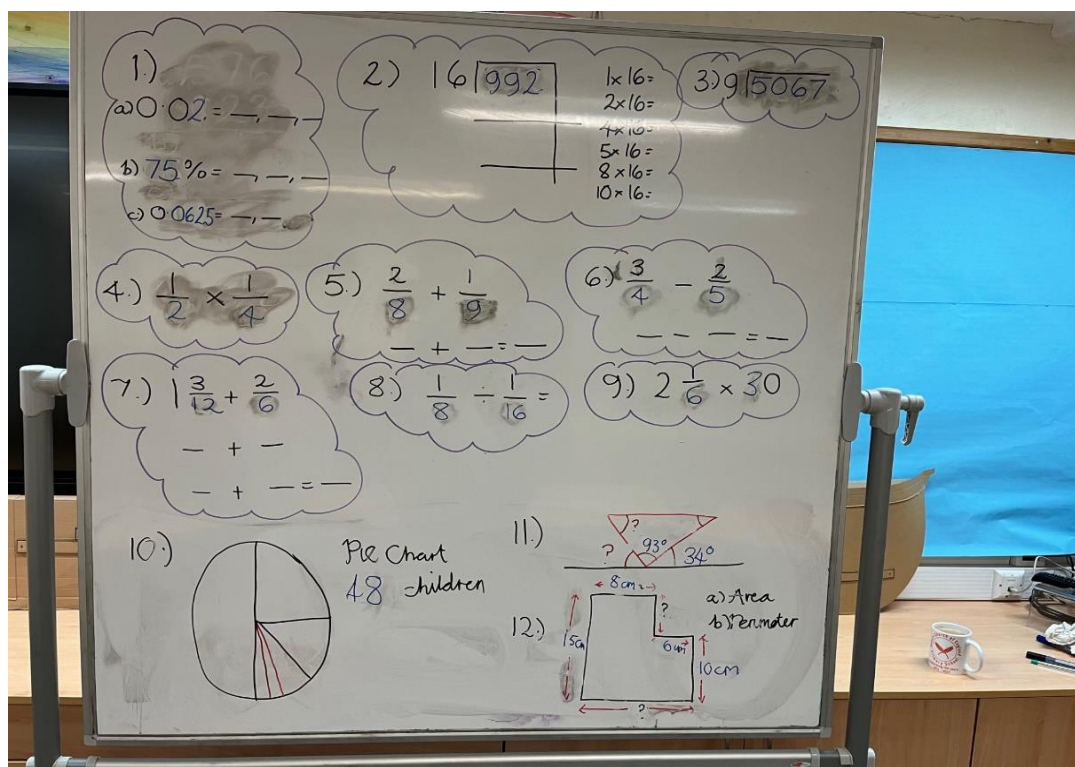 1.)
a) 0.02 = —, —, —
b) 75% = —, —, —
c) 0.0625 = —, —
2) 16 992
1 x 16 =
2 x 16 =
4 x 16 =
5 x 16 =
8 x 16 =
10 x 16 =
3.) 9 5067
4.) 1/2 x 1/4
5.) 2/8 + 1/9
— + — = —
6.) 3/4 − 2/5
— − — = —
7.) 1 3/12 + 2/6
— + —
— + — = —
8.) 1/8 ÷ 1/16 =
9) 2 1/6 x 30
10.)
Pie Chart
48 children
11.)
?
? 93° 34°
12.)
8cm
?
15cm
6cm
10cm
?
a) Area
b) Perimeter